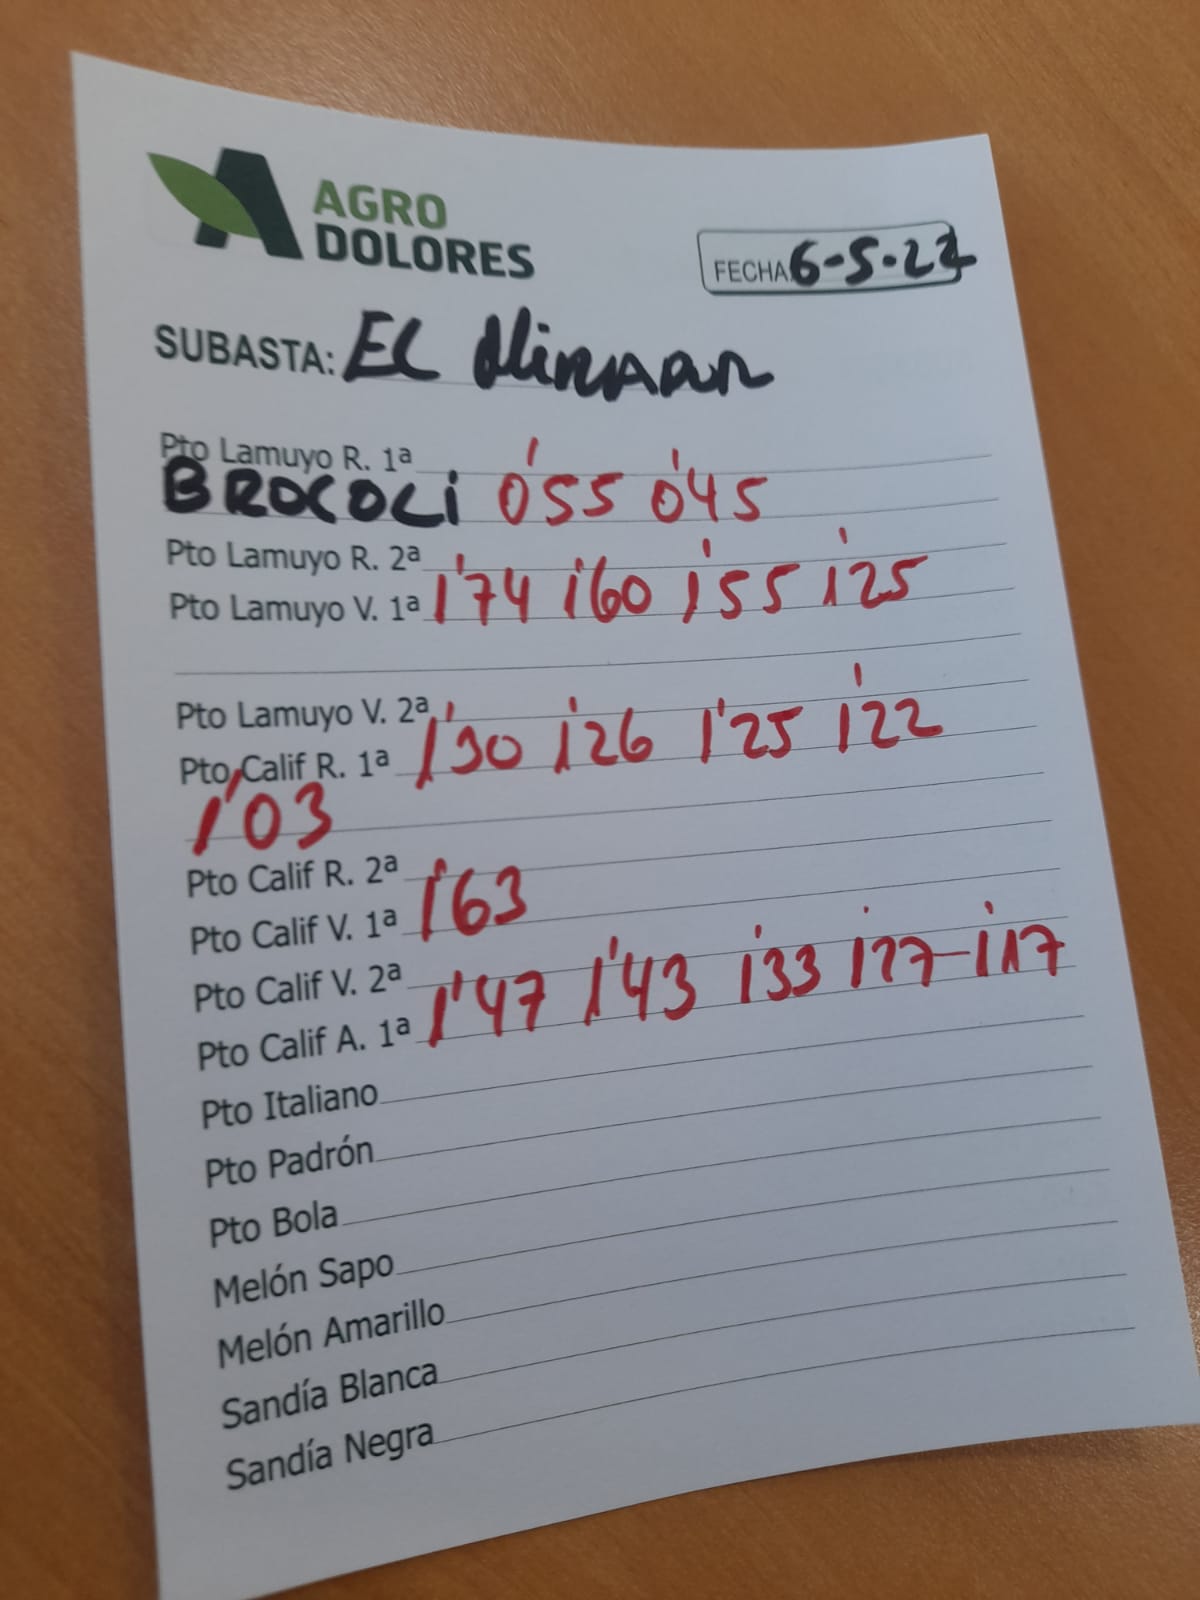 AGRO
DOLORES
FECHA 6-5-22
SUBASTA: EL Mirador
Pto Lamuyo R. 1ª
BROCOLI 0'55 0'45
Pto Lamuyo R. 2ª
Pto Lamuyo V. 1ª 1'74 1'60 1'55 1'25
Pto Lamuyo V. 2ª
Pto Calif R. 1ª 1'30 1'26 1'25 1'22
1'03
Pto Calif R. 2ª
Pto Calif V. 1ª 1'63
Pto Calif V. 2ª
Pto Calif A. 1ª 1'47 1'43 1'33 1'27-1'17
Pto Italiano
Pto Padrón
Pto Bola
Melón Sapo
Melón Amarillo
Sandía Blanca
Sandía Negra